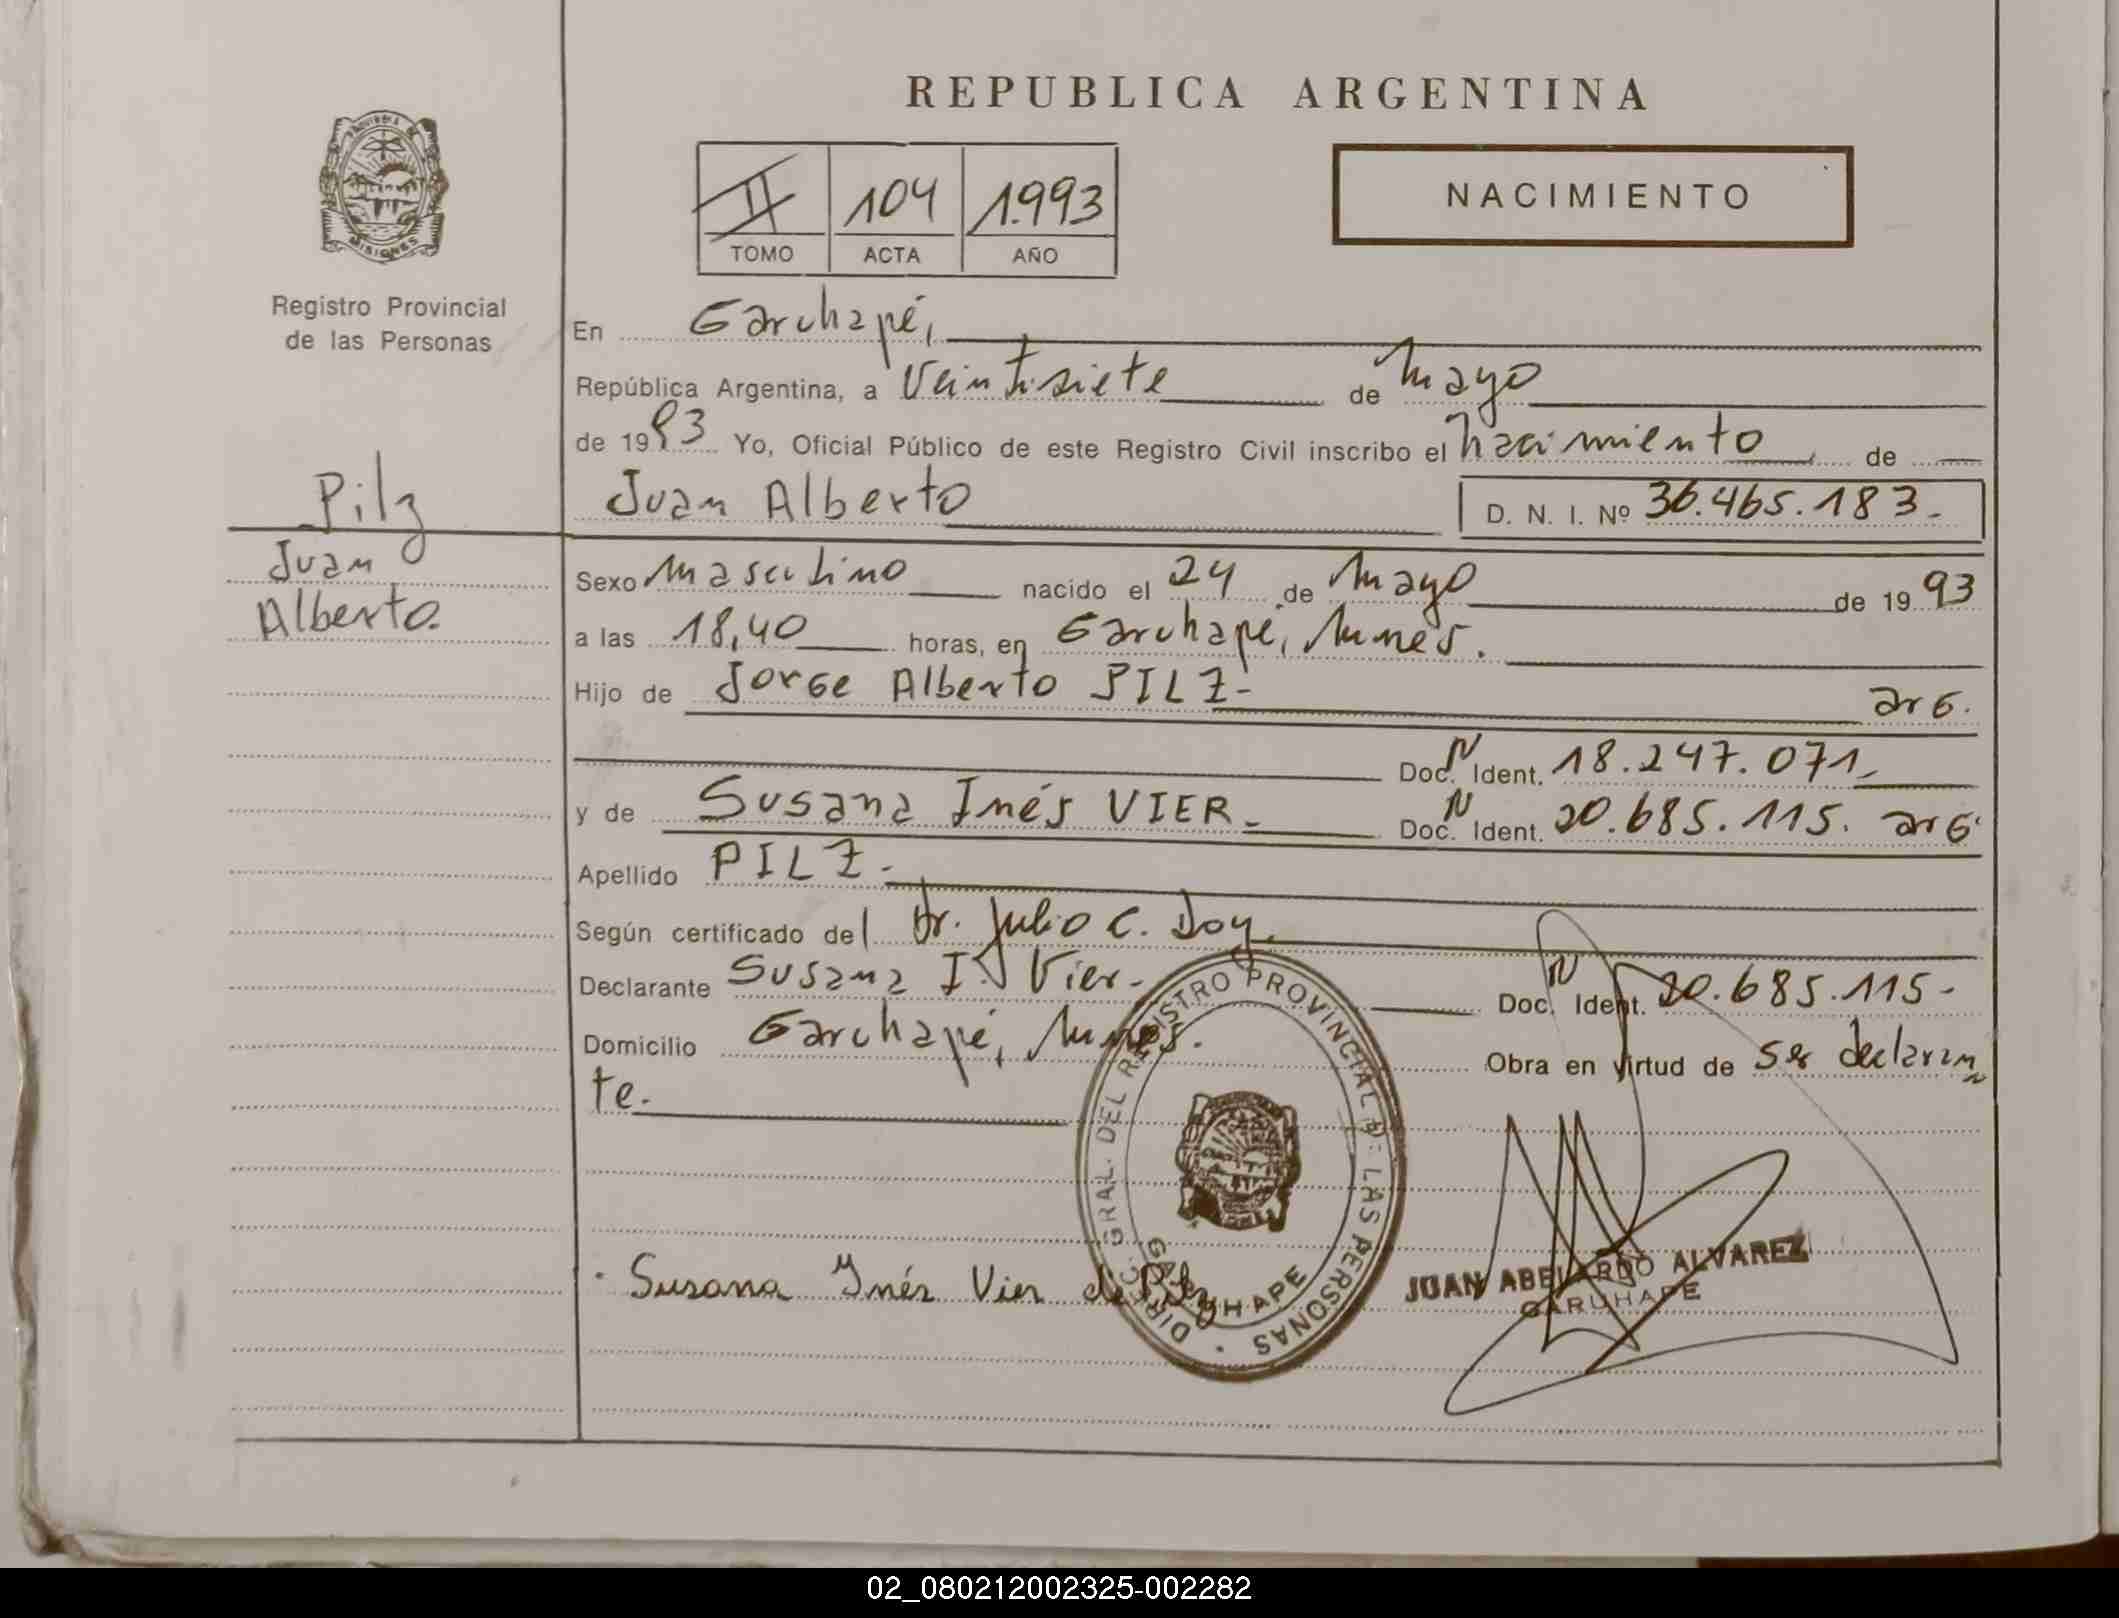 REPUBLICA ARGENTINA
PROVINCIA DE MISIONES
Registro Provincial
de las Personas
II 104 1.993
TOMO ACTA AÑO
NACIMIENTO
En Garuhapé,
República Argentina, a Veintisiete de Mayo
de 1993 Yo, Oficial Público de este Registro Civil inscribo el nacimiento de
Juan Alberto D. N. I. Nº 36.465.183.-
Pilz
Juan
Alberto.
Sexo masculino nacido el 24 de Mayo de 1993
a las 18,40 horas, en Garuhapé, Mnes.
Hijo de Jorge Alberto PILZ- arg.
Doc. N Ident. 18.247.071.-
y de Susana Inés VIER.- Doc. N Ident. 20.685.115. arg.
Apellido PILZ.-
Según certificado del Dr. Julio C. Doy.
Declarante Susana I. Vier.- Doc. N Ident. 20.685.115-
Domicilio Garuhapé, Mnes. Obra en virtud de ser declaran
te.-
DIREC. GRAL. DEL REGISTRO PROVINCIAL DE LAS PERSONAS
GARUHAPE
Susana Inés Vier de Pilz
JUAN ABELARDO ALVAREZ
GARUHAPE
02_080212002325-002282